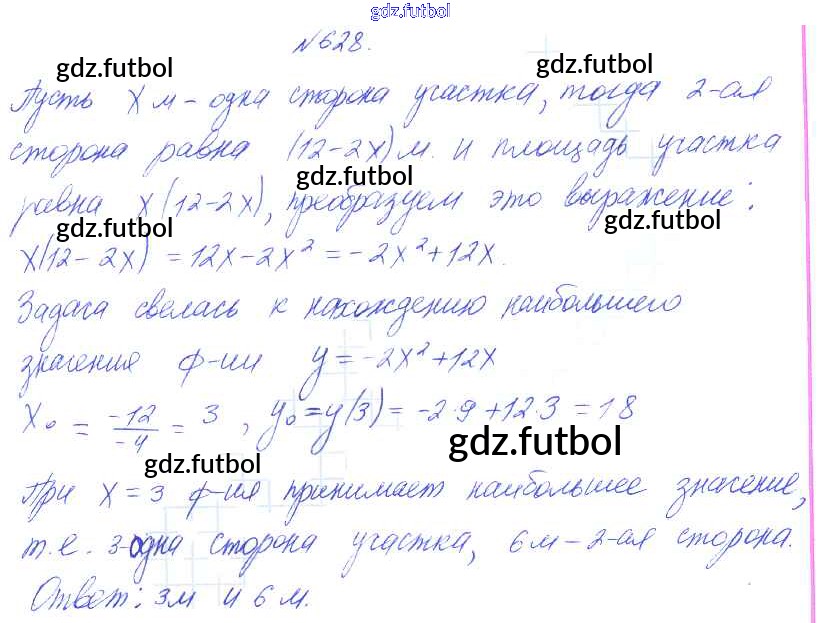 gdz.futbol
№628.
gdz.futbol gdz.futbol
Пусть x м - одна сторона участка, тогда 2-ая
сторона равна (12-2x) м. и площадь участка
gdz.futbol
равна x(12-2x), преобразуем это выражение:
gdz.futbol gdz.futbol
x(12-2x) = 12x-2x² = -2x²+12x.
Задача свелась к нахождению наибольшего
значения ф-ии y = -2x²+12x
x₀ = -12/-4 = 3, y₀ = y(3) = -2·9+12·3 = 18
gdz.futbol
gdz.futbol
При x = 3 ф-ия принимает наибольшее значение,
т.е. 3-одна сторона участка, 6м - 2-ая сторона.
Ответ: 3м и 6м.